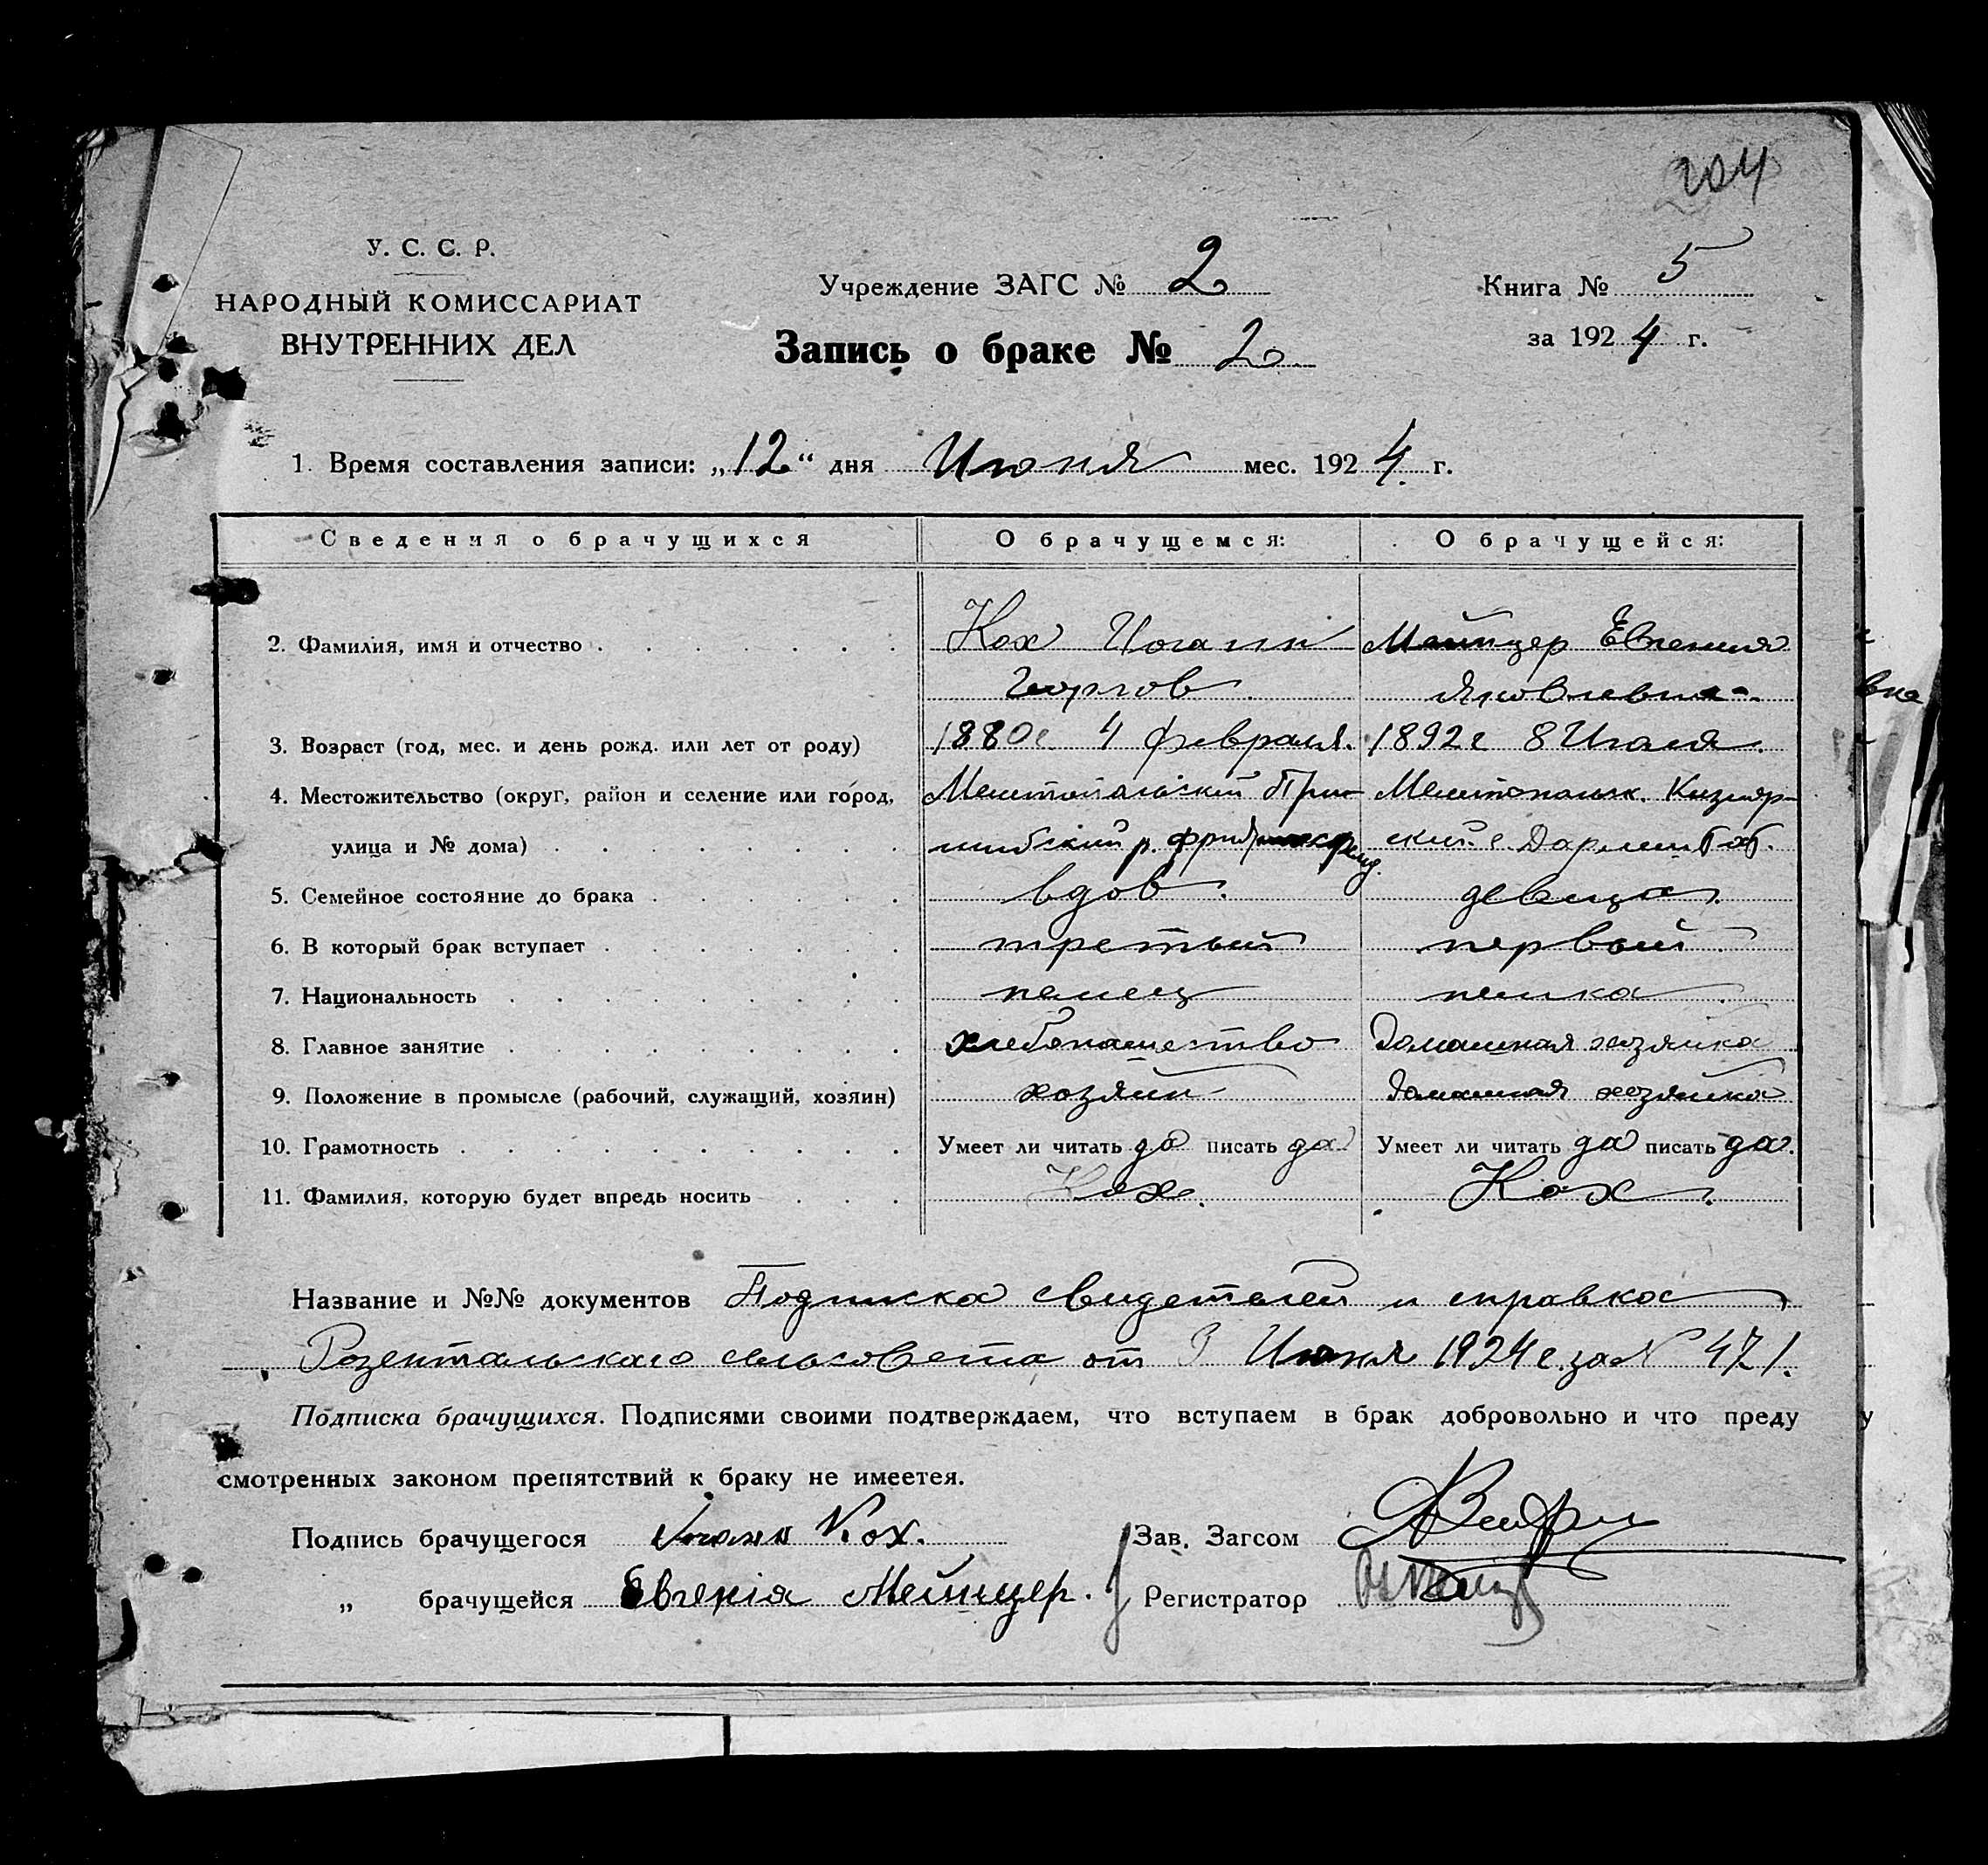 204
У. С. С. Р.
НАРОДНЫЙ КОМИССАРИАТ
ВНУТРЕННИХ ДЕЛ
Учреждение ЗАГС № 2
Запись о браке № 20
Книга № 5
за 1924 г.
1. Время составления записи: „12“ дня Июня мес. 1924 г.
Сведения о брачущихся О брачущемся: О брачущейся:
2. Фамилия, имя и отчество Кох Иоганн Мейнцер Евгения
Георгов Яковлевна
3. Возраст (год, мес. и день рожд. или лет от роду) 1880г. 4 февраля. 1892г 8 Июля.
4. Местожительство (округ, район и селение или город, Мелитопольский Приши- Мелитопольск. Кизиар-
улица и № дома) шибский р. ский с. Дармштат.
5. Семейное состояние до брака вдов. девица.
6. В который брак вступает третий первый
7. Национальность немец немка
8. Главное занятие хлебопашество Домашная хозяйка
9. Положение в промысле (рабочий, служащий, хозяин) хозяин Домашная хозяйка
10. Грамотность Умеет ли читать да писать да Умеет ли читать да писать да.
11. Фамилия, которую будет впредь носить Кох. Кох.
Название и №№ документов Подписка свидетелей и справка
Розентальскаго сельсовета от 3 Июня 1924 г. за № 471.
Подписка брачущихся. Подписями своими подтверждаем, что вступаем в брак добровольно и что преду
смотренных законом препятствий к браку не имеетея.
Подпись брачущегося Иоганн Кох. Зав. Загсом
„ брачущейся Евгенія Мейнцер. Регистратор